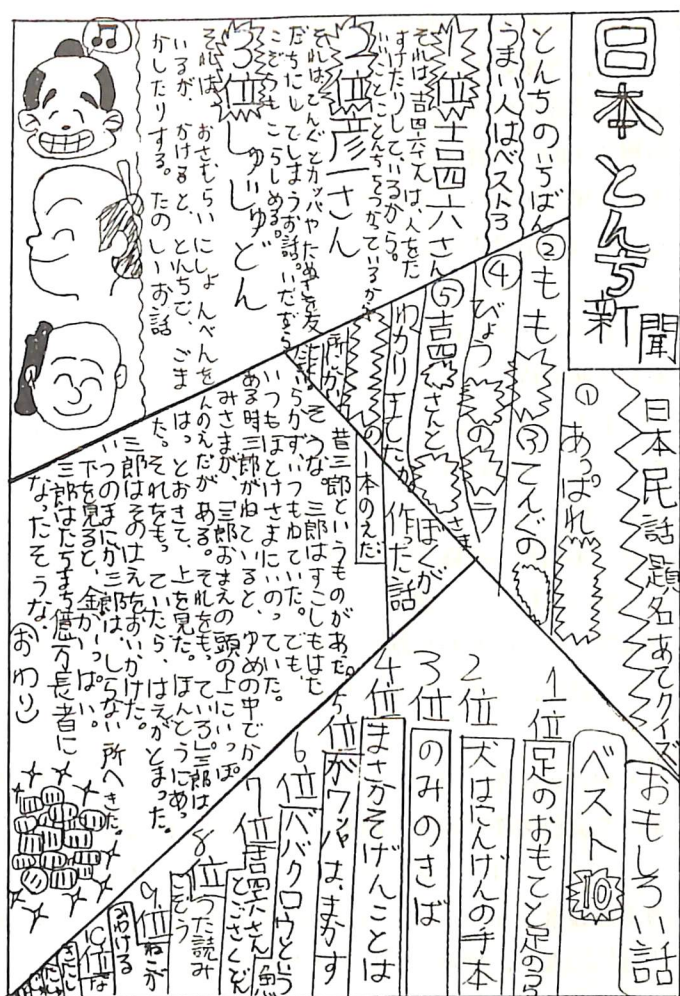 日本とんち新聞
とんちのいちばん
うまい人はベスト3
1位 吉四六さん
それは吉四六さんは、人をた
すけたりしているから。
いいことにとんちをつかっているから
2位 彦一さん
それは、てんぐとカッパやたぬきを友
だちにしてしまうお話。いたずら
こぞうもこらしめる。
3位 しゅじゅどん
それは、おさむらいにしょんべんを
かけると、とんちで、ごま
かしたりする。たのしいお話
日本民話題名あてクイズ
① あっぱれ
② もも
③ てんぐの
④ びょう の ラ
⑤ 吉四 さんと さま
わかりましたか
ぼくが作った話
の一本のえだ
昔三郎というものがあった
そうな。三郎はすこしもはた
らかずいつもねていた。でも、
いつもほとけさまにいのっていた。
ある時三郎がねていると、ゆめの中でか
みさまが、「三郎おまえの頭の上にいっぽ
んのえだがある。それをもっている」三郎は
はっとおきて、上を見た。ほんとうにあっ
た。それをもっていたら、はえがとまった。
三郎はそのはえをおいかけた。
いつのまにか三郎は、しらない所へきた。
下を見ると、金がいっぱい。
三郎はたちまち億万長者に
なったそうな。
(おわり)
おもしろい話
ベスト10
1位 足のおもてと足のうら
2位 犬はにんげんの手本
3位 のみのさば
4位 まさかそげんことは
5位
6位 ババクロウという
7位 吉四六さんとごさくどん
8位
9位
10位